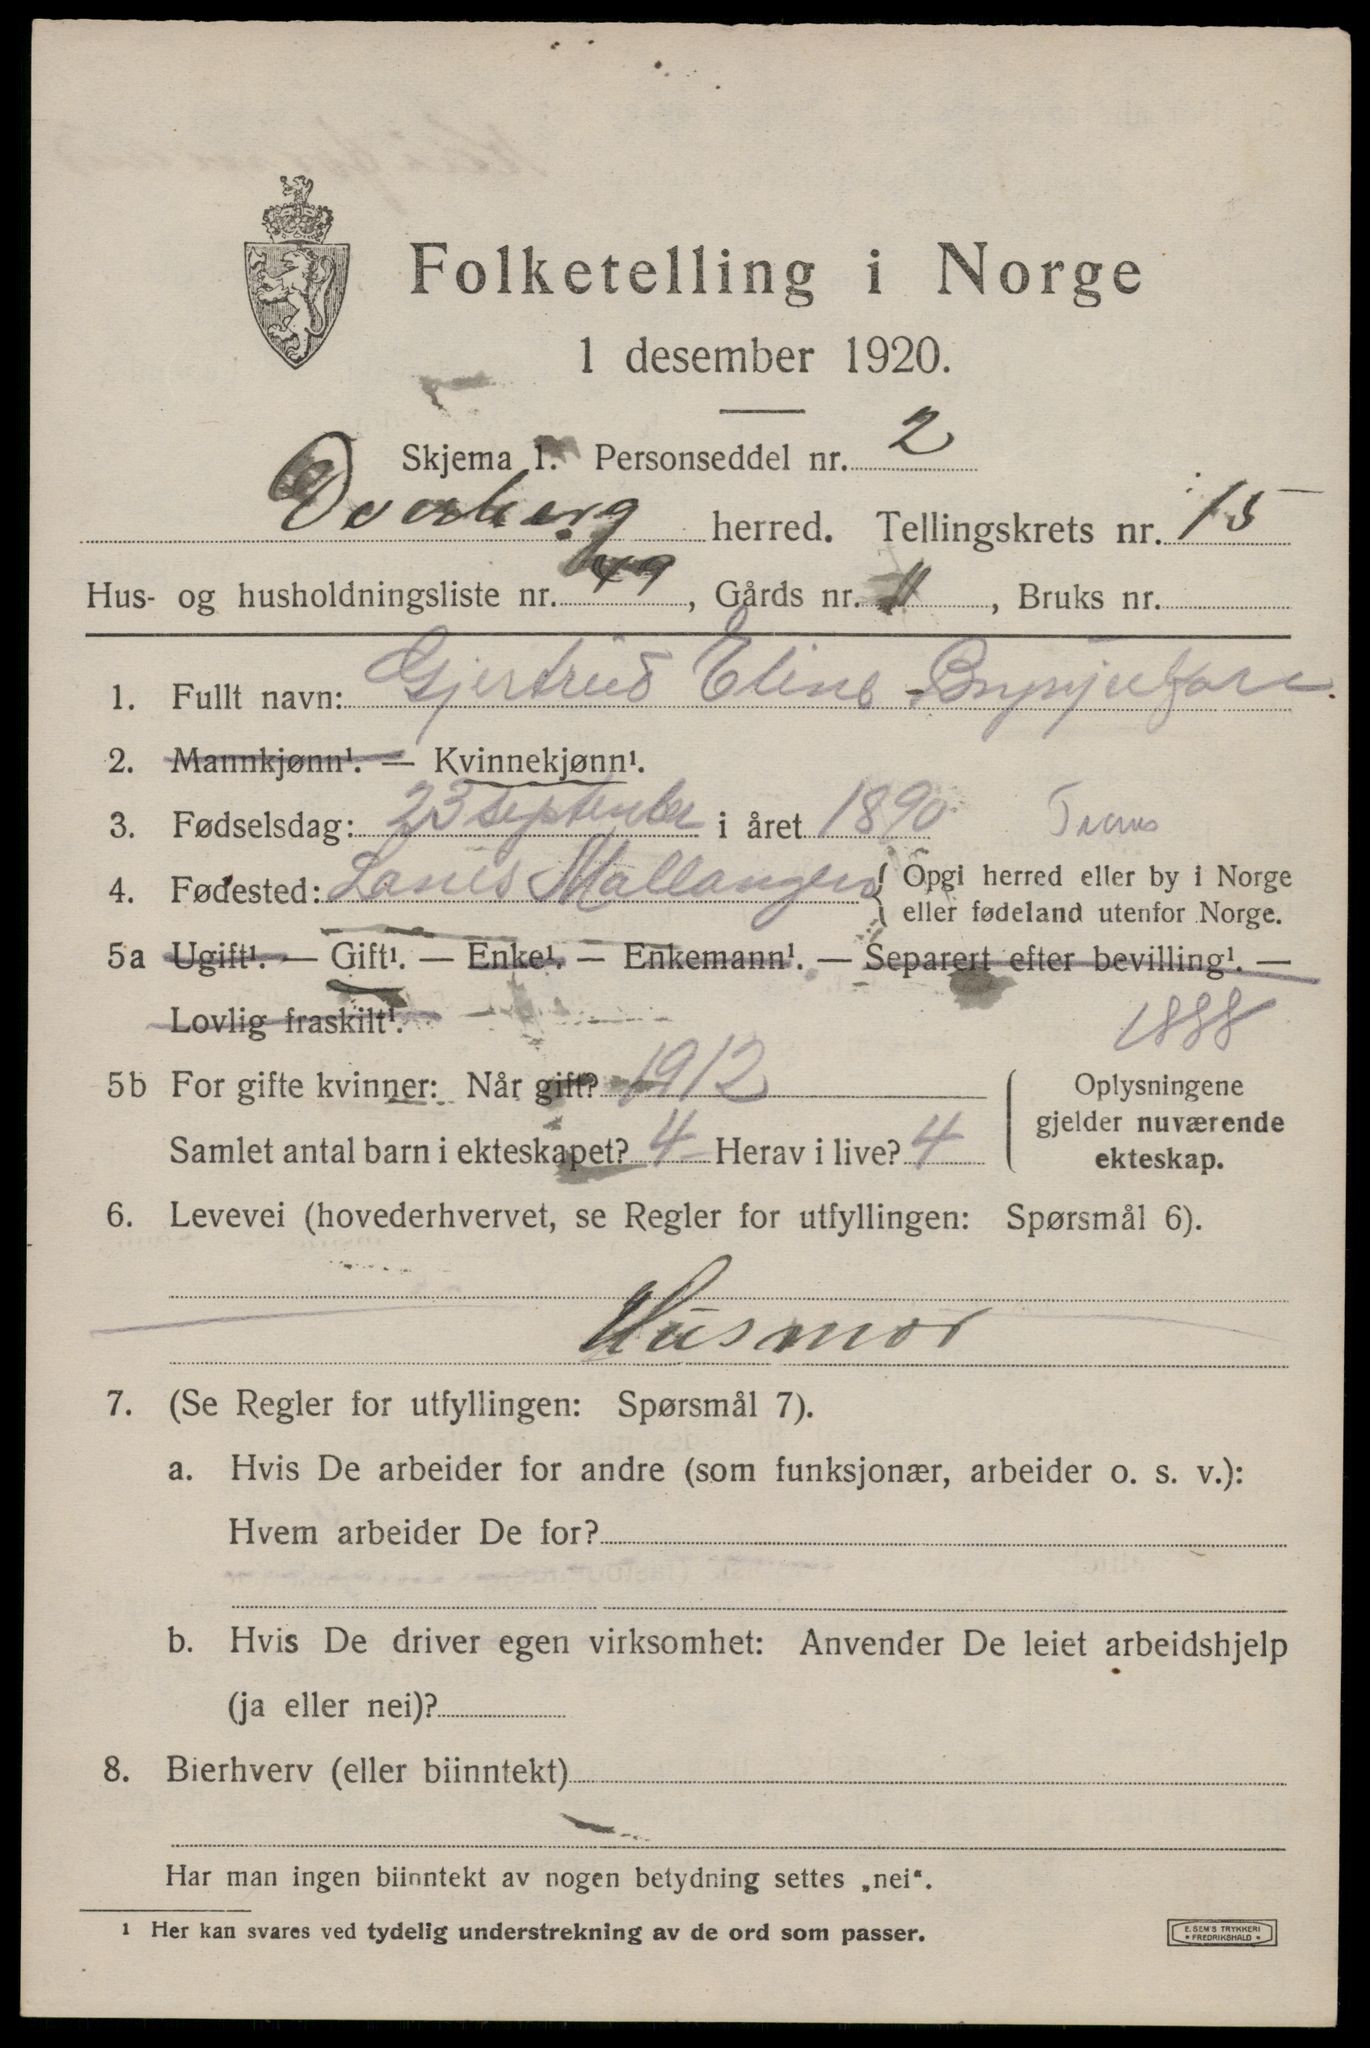 Folketelling i Norge
1 desember 1920.
Skjema 1. Personseddel nr. 2
Dverberg herred. Tellingskrets nr. 15
Hus- og husholdningsliste nr. 49, Gårds nr. 11, Bruks nr.
1. Fullt navn: Gjertrud Eline
2. Mannkjønn¹. — Kvinnekjønn¹.
3. Fødselsdag: 23 september i året 1890 Troms
4. Fødested: Mallangen { Opgi herred eller by i Norge
eller fødeland utenfor Norge.
5a Ugift¹. — Gift¹. — Enke¹. — Enkemann¹. — Separert efter bevilling¹. —
Lovlig fraskilt¹.
1888
5b For gifte kvinner: Når gift? 1912
Samlet antal barn i ekteskapet? 4 Herav i live? 4
Oplysningene
gjelder nuværende
ekteskap.
6. Levevei (hovederhvervet, se Regler for utfyllingen: Spørsmål 6).
Husmor
7. (Se Regler for utfyllingen: Spørsmål 7).
a. Hvis De arbeider for andre (som funksjonær, arbeider o. s. v.):
Hvem arbeider De for?
b. Hvis De driver egen virksomhet: Anvender De leiet arbeidshjelp
(ja eller nei)?
8. Bierhverv (eller biinntekt)
Har man ingen biinntekt av nogen betydning settes „nei“.
¹ Her kan svares ved tydelig understrekning av de ord som passer.
E. SEM'S TRYKKERI
FREDRIKSHALD